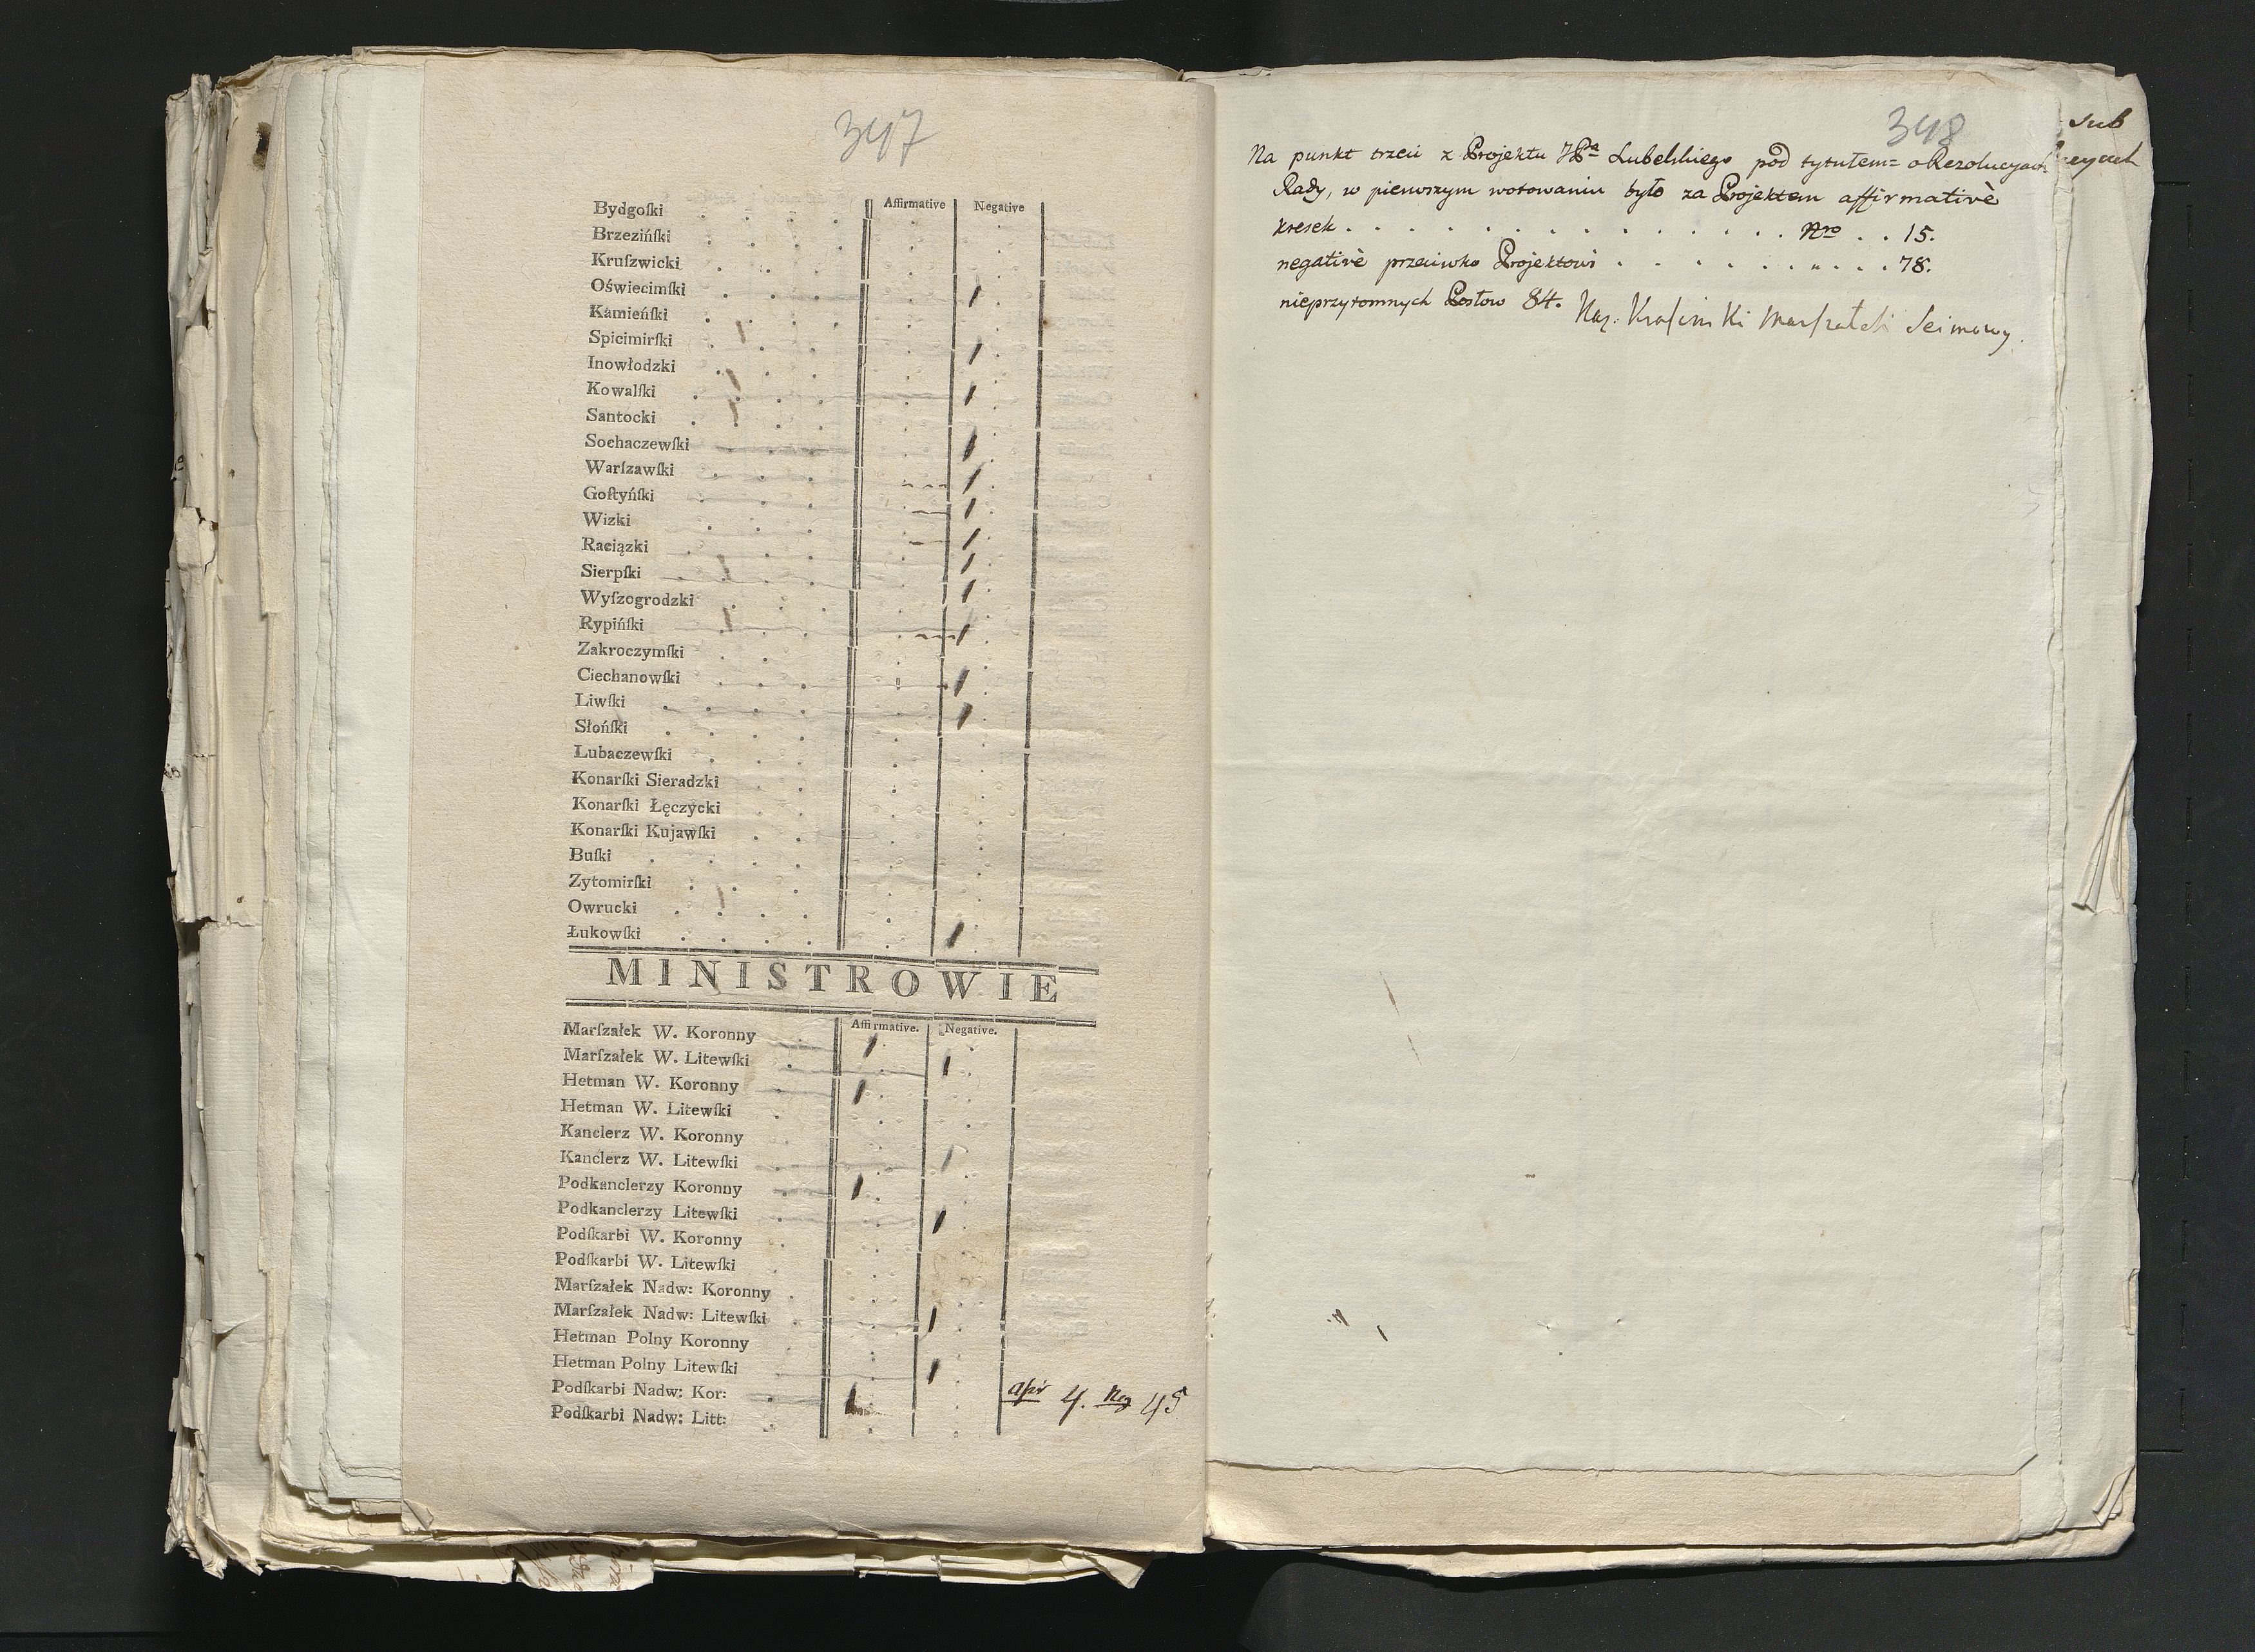 347
Affirmative Negative
Bydgoſki
Brzezińſki
Kruſzwicki
Oświecimſki
Kamieńſki
Spicimirſki
Inowłodzki
Kowalſki
Santocki
Sochaczewſki
Warſzawſki
Goſtyńſki
Wizki
Raciązki
Sierpſki
Wyſzogrodzki
Rypińſki
Zakroczymſki
Ciechanowſki
Liwſki
Słońſki
Lubaczewſki
Konarſki Sieradzki
Konarſki Łęczycki
Konarſki Kujawſki
Buſki
Zytomirſki
Owrucki
Łukowſki
MINISTROWIE
Affirmative. Negative.
Marſzałek W. Koronny
Marſzałek W. Litewſki
Hetman W. Koronny
Hetman W. Litewſki
Kanclerz W. Koronny
Kanclerz W. Litewſki
Podkanclerzy Koronny
Podkanclerzy Litewſki
Podſkarbi W. Koronny
Podſkarbi W. Litewſki
Marſzałek Nadw: Koronny
Marſzałek Nadw: Litewſki
Hetman Polny Koronny
Hetman Polny Litewſki
Podſkarbi Nadw: Kor:
Podſkarbi Nadw: Litt:
4. Neg 45
348
Na punkt trzeci z Projektu JPa Lubelskiego pod tytułem= o Rezolucyach
Rady, w pierwszym wotowaniu było za Projektem affirmativè
kresek . . . Nro . . 15.
negativè przeciwko Projektowi . . . 78.
nieprzytomnych Posłow 84.
Kraſinſki Marſzałek Seimowy.
sub